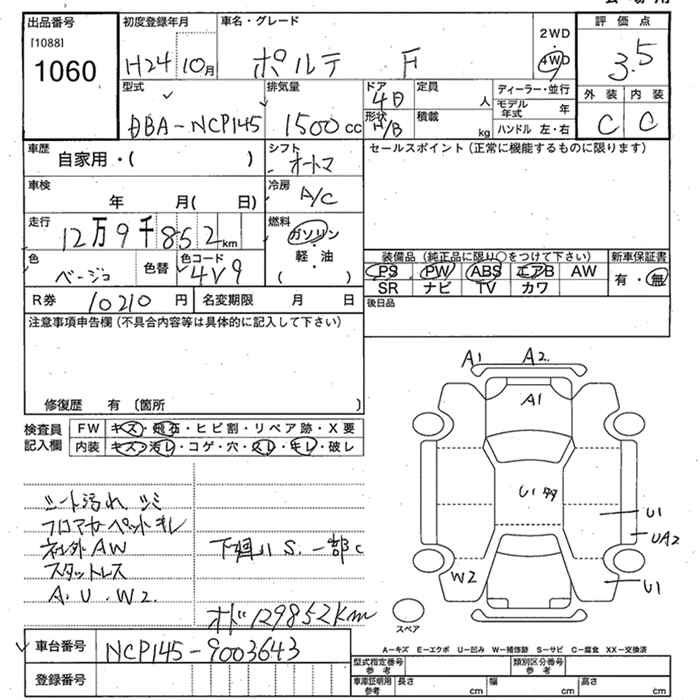 出品番号
[1088]
1060
初度登録年月
H24 10月
車名・グレード
ポルテ F
2WD
4WD
評価点
3.5
型式
DBA-NCP145
排気量
1500cc
ドア
4D
形状
H/B
定員
人
積載
kg
ディーラー・並行
モデル年式
年
ハンドル 左・右
外装 内装
C C
車歴
自家用・( )
シフト
オートマ
セールスポイント(正常に機能するものに限ります)
車検
年 月( 日)
冷房
A/C
走行
12万9千852km
燃料
ガソリン
・
軽・油
( )
色
ベージュ
色替
色コード
4V9
装備品(純正品に限り○をつけて下さい)
新車保証書
PS PW ABS エアB AW
有・無
SR ナビ TV カワ
R券
10210円
名変期限 月 日
後日品
注意事項申告欄(不具合内容等は具体的に記入して下さい)
修復歴 有 〔箇所 〕
検査員
記入欄
FW キズ・飛石・ヒビ割・リペア跡・X要
内装 キズ・汚レ・コゲ・穴・スレ・キレ・破レ
シート汚れ シミ
フロアカーペットキレ
社外AW
スタットレス
A.U.W2.
下廻りS.一部C
オド129852km
A1 A2
A1
U1
U1
UA2
W2
U1
スペア
車台番号
NCP145-9003643
登録番号
A=キズ E=エクボ U=凹み W=補修跡 S=サビ C=腐食 XX=交換済
型式指定番号
参考
類別区分番号
参考
車庫証明用
参考
長さ cm 幅 cm 高さ cm